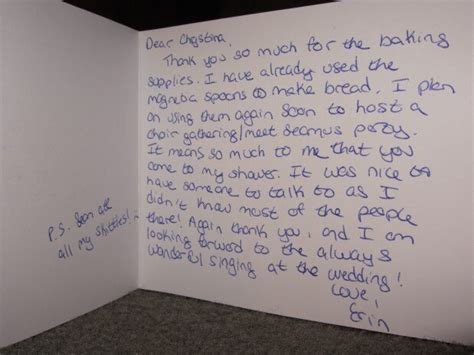 Dear Christina,
Thank you so much for the baking
supplies. I have already used the
magnetic spoons to make bread. I plan
on using them again soon to host a
choir gathering/meet Seamus party.
It means so much to me that you
came to my shower. It was nice to
have someone to talk to as I
didn't know most of the people
there! Again thank you, and I am
looking forward to the always
wonderful singing at the wedding!
Love,
Erin
P.S. Sean ate
all my skittles!